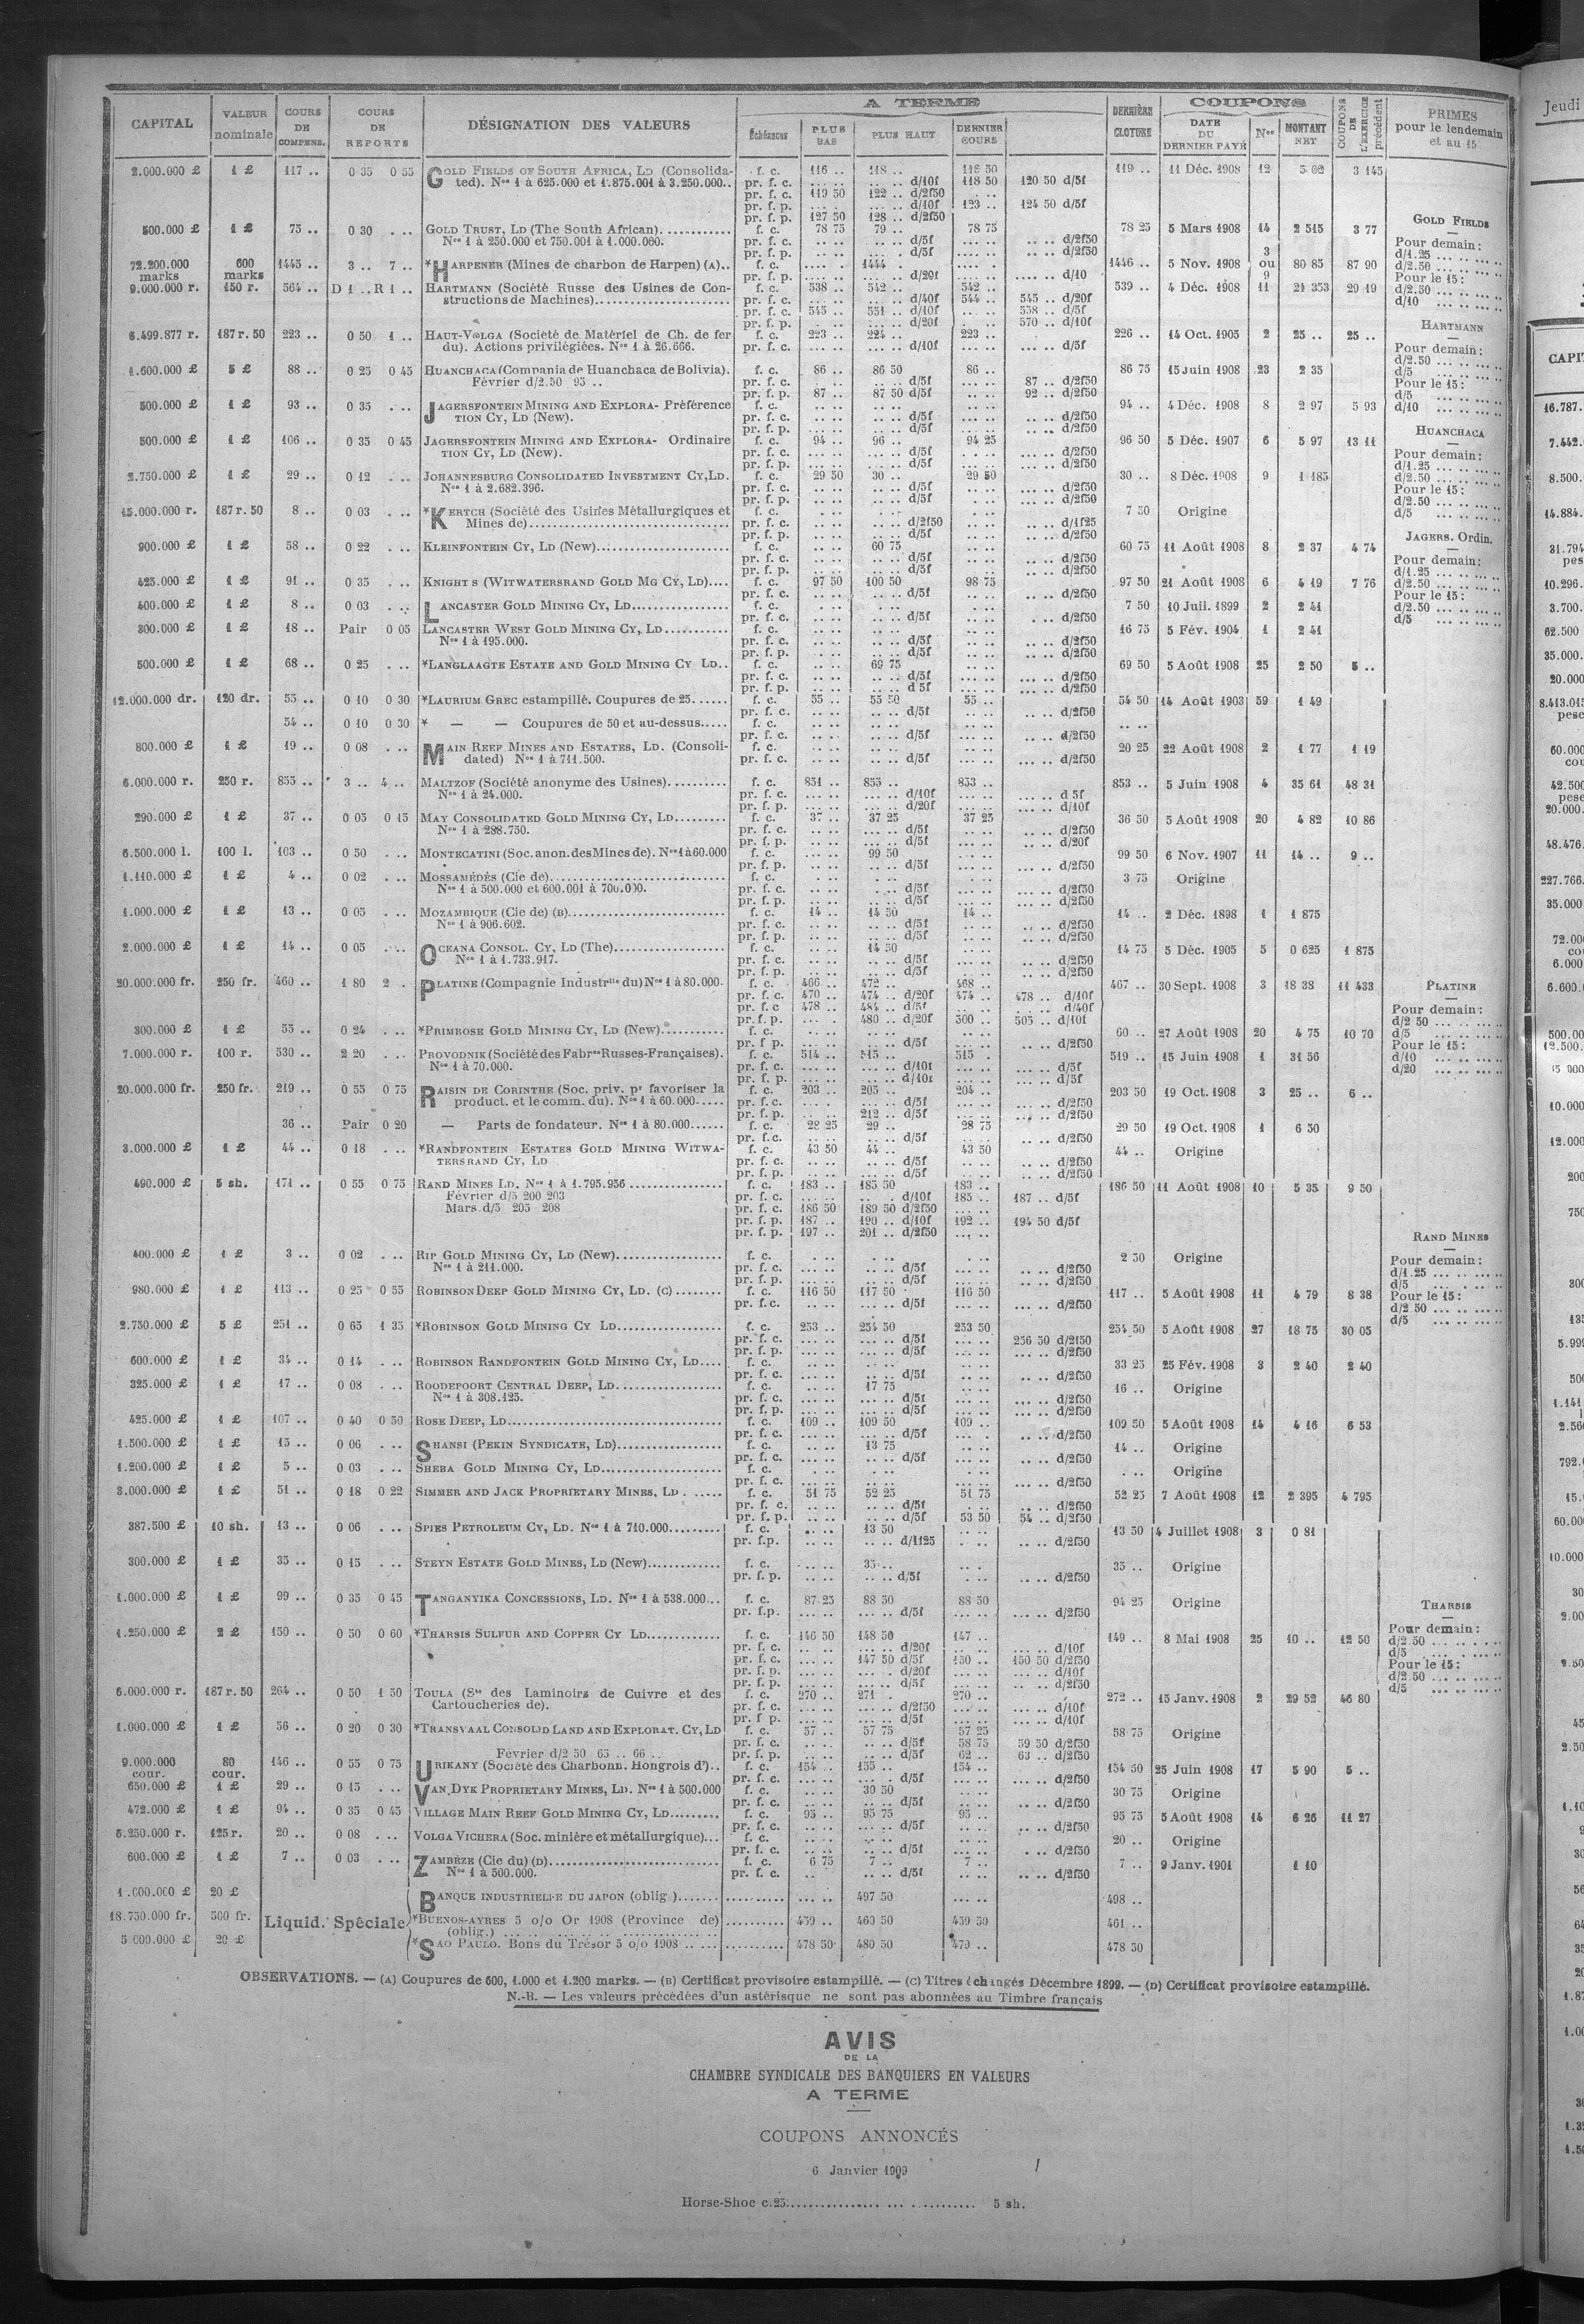 CAPITAL | VALEUR nominale | COURS DE COMPENS. | COURS DE REPORTS | DÉSIGNATION DES VALEURS | A TERME | DERNIÈRE CLOTURE | COUPONS | COUPONS DE L'EXERCICE précédent | PRIMES pour le lendemain et au 15
Échéances | PLUS BAS | PLUS HAUT | DERNIER COURS | DATE DU DERNIER PAYÉ | Nos | MONTANT NET
2.000.000 £ 1 £ 117 .. 0 35 0 55 GOLD FIELDS OF SOUTH AFRICA, LD (Consolida- f. c. 116 .. 118 .. 118 50 119 .. 11 Déc. 1908 12 5 02 3 145
ted). Nos 1 à 625.000 et 1.875.001 à 3.250.000.. pr. f. c. ... .. .... .. d/10f 118 50 120 50 d/5f
pr. f. c. 119 50 122 .. d/2f50
pr. f. p. ... .. d/10f 123 .. 124 50 d/5f
pr. f. p. 127 50 128 .. d/2f50
500.000 £ 1 £ 75 .. 0 30 . .. GOLD TRUST, LD (The South African)............ f. c. 78 75 79 .. 78 75 78 25 5 Mars 1908 14 2 515 3 77
Nos 1 à 250.000 et 750.001 à 1.000.000. pr. f. c. .. .. .. .. d/5f .. .. .. .. d/2f50
pr. f. p. .. .. .. .. d/5f .. .. .. .. d/2f50
72.200.000 marks 600 marks 1445 .. 3 .. 7 .. *HARPENER (Mines de charbon de Harpen) (A).. f. c. 1444 . 1446 .. 5 Nov. 1908 3 ou 9 80 85 87 90
pr. f. p. d/20f d/10
9.000.000 r. 150 r. 564 .. D 1 .. R 1 .. HARTMANN (Société Russe des Usines de Con- f. c. 538 .. 542 .. 542 .. 539 .. 4 Déc. 1908 11 21 353 29 19
structions de Machines)...................... pr. f. c. d/40f 544 .. 545 .. d/20f
pr. f. c. 545 .. 551 .. d/10f 558 .. d/5f
pr. f. p. d/20f 570 .. d/10f
6.499.877 r. 187 r. 50 223 .. 0 50 1 .. HAUT-VOLGA (Société de Matériel de Ch. de fer f. c. 223 .. 224 .. 223 .. 226 .. 14 Oct. 1905 2 25 .. 25 ..
du). Actions privilégiées. Nos 1 à 26.666. pr. f. c. d/10f d/5f
1.600.000 £ 5 £ 88 .. 0 25 0 45 HUANCHACA (Compania de Huanchaca de Bolivia). f. c. 86 .. 86 50 86 .. 86 75 15 Juin 1908 23 2 35
Février d/2.50 95 .. pr. f. c. d/5f 87 .. d/2f50
pr. f. p. 87 .. 87 50 d/5f 92 .. d/2f50
500.000 £ 1 £ 93 .. 0 35 . .. JAGERSFONTEIN MINING AND EXPLORA- Préférence f. c. 94 .. 4 Déc. 1908 8 2 97 5 93
TION CY, LD (New). pr. f. c. d/5f d/2f50
pr. f. p. d/5f d/2f50
500.000 £ 1 £ 106 .. 0 35 0 45 JAGERSFONTEIN MINING AND EXPLORA- Ordinaire f. c. 94 .. 96 .. 94 25 96 50 5 Déc. 1907 6 5 97 13 11
TION CY, LD (New). pr. f. c. d/5f d/2f50
pr. f. p. d/5f d/2f50
2.750.000 £ 1 £ 29 .. 0 12 . .. JOHANNESBURG CONSOLIDATED INVESTMENT CY, LD. f. c. 29 50 30 .. 29 50 30 .. 8 Déc. 1908 9 1 185
Nos 1 à 2.682.396. pr. f. c. d/5f d/2f50
pr. f. p. d/5f d/2f50
15.000.000 r. 187 r. 50 8 .. 0 03 . .. *KERTCH (Société des Usines Métallurgiques et f. c. 7 50 Origine
Mines de)................................... pr. f. c. d/2f50 d/1f25
pr. f. p. d/5f d/2f50
900.000 £ 1 £ 58 .. 0 22 . .. KLEINFONTEIN CY, LD (New)...................... f. c. 60 75 60 75 11 Août 1908 8 2 37 4 74
pr. f. c. d/5f d/2f50
pr. f. p. d/5f d/2f50
425.000 £ 1 £ 91 .. 0 35 . .. KNIGHT S (WITWATERSRAND GOLD MG CY, LD).... f. c. 97 50 100 50 98 75 97 50 21 Août 1908 6 4 19 7 76
pr. f. c. d/5f d/2f50
400.000 £ 1 £ 8 .. 0 03 . .. LANCASTER GOLD MINING CY, LD................. f. c. 7 50 10 Juil. 1899 2 2 41
pr. f. c. d/5f d/2f50
300.000 £ 1 £ 18 .. Pair 0 05 LANCASTER WEST GOLD MINING CY, LD........... f. c. 16 75 5 Fév. 1904 1 2 41
Nos 1 à 195.000. pr. f. c. d/5f d/2f50
pr. f. p. d/5f d/2f50
500.000 £ 1 £ 68 .. 0 25 . .. *LANGLAAGTE ESTATE AND GOLD MINING CY LD.. f. c. 69 75 69 50 5 Août 1908 25 2 50 5 ..
pr. f. c. d/5f d/2f50
pr. f. p. d 5f d/2f50
12.000.000 dr. 120 dr. 55 .. 0 10 0 30 *LAURIUM GREC estampillé. Coupures de 25...... f. c. 55 .. 55 50 55 .. 54 50 14 Août 1903 59 1 49
pr. f. c. d/5f d/2f50
54 .. 0 10 0 30 * — — Coupures de 50 et au-dessus..... f. c. .. ..
pr. f. c. d/5f d/2f50
800.000 £ 1 £ 19 .. 0 08 . .. MAIN REEF MINES AND ESTATES, LD. (Consoli- f. c. 20 25 22 Août 1908 2 1 77 1 19
dated) Nos 1 à 711.500. pr. f. c. d/5f d/2f50
6.000.000 r. 250 r. 855 .. 3 .. 4 .. MALTZOF (Société anonyme des Usines).......... f. c. 851 .. 855 .. 853 .. 853 .. 5 Juin 1908 4 35 61 48 31
Nos 1 à 24.000. pr. f. c. d/10f d 5f
pr. f. p. d/20f d/10f
290.000 £ 1 £ 37 .. 0 05 0 15 MAY CONSOLIDATED GOLD MINING CY, LD......... f. c. 37 .. 37 25 37 25 36 50 5 Août 1908 20 4 82 10 86
Nos 1 à 288.750. pr. f. c. d/5f d/2f50
pr. f. p. d/5f d/20f
6.500.000 l. 100 l. 103 .. 0 50 . .. MONTECATINI (Soc. anon. des Mines de). Nos 1 à 60.000 f. c. 99 50 99 50 6 Nov. 1907 11 14 .. 9 ..
pr. f. p. d/5f d/2f50
1.110.000 £ 1 £ 4 .. 0 02 . .. MOSSAMÉDÈS (Cie de)............................ f. c. 3 75 Origine
Nos 1 à 500.000 et 600.001 à 700.000. pr. f. c. d/5f d/2f50
pr. f. p. d/5f d/2f50
1.000.000 £ 1 £ 13 .. 0 05 . .. MOZAMBIQUE (Cie de) (B)......................... f. c. 14 .. 14 50 14 .. 14 .. 2 Déc. 1898 1 1 875
Nos 1 à 906.602. pr. f. c. d/5f d/2f50
pr. f. p. d/5f d/2f50
2.000.000 £ 1 £ 14 .. 0 05 . .. OCEANA CONSOL. CY, LD (The).................. f. c. 14 50 14 75 5 Déc. 1905 5 0 625 1 875
Nos 1 à 1.733.917. pr. f. c. d/5f d/2f50
pr. f. p. d/5f d/2f50
20.000.000 fr. 250 fr. 460 .. 1 80 2 . PLATINE (Compagnie Industrlle du) Nos 1 à 80.000. f. c. 466 .. 472 .. 468 .. 467 .. 30 Sept. 1908 3 18 38 11 433
pr. f. c. 470 .. 474 .. d/20f 474 .. 478 .. d/10f
pr. f. c 478 .. 484 .. d/5f d/40f
pr. f. p. 480 .. d/20f 500 .. 505 .. d/10f
300.000 £ 1 £ 55 .. 0 24 . .. *PRIMROSE GOLD MINING CY, LD (New)........... f. c. 60 .. 27 Août 1908 20 4 75 10 70
pr. f p. d/5f d/2f50
7.000.000 r. 100 r. 530 .. 2 20 . .. PROVODNIK (Société des Fabres Russes-Françaises). f. c. 514 .. 515 .. 515 . 519 .. 15 Juin 1908 1 31 56
Nos 1 à 70.000. pr. f. c. d/10f d/5f
pr. f. p. d/10f d/5f
20.000.000 fr. 250 fr. 219 .. 0 55 0 75 RAISIN DE CORINTHE (Soc. priv. pr favoriser la f. c. 203 .. 205 .. 204 .. 203 50 19 Oct. 1908 3 25 .. 6 ..
product. et le comm. du). Nos 1 à 60.000..... pr. f. c. d/5f d/2f50
pr. f. p. 212 .. d/5f d/2f50
36 .. Pair 0 20 — Parts de fondateur. Nos 1 à 80.000...... f. c. 28 25 29 .. 28 75 29 50 19 Oct. 1908 1 6 50
pr. f. c. d/5f d/2f50
3.000.000 £ 1 £ 44 .. 0 18 . .. *RANDFONTEIN ESTATES GOLD MINING WITWA- f. c. 43 50 44 .. 43 50 44 .. Origine
TERSRAND CY, LD pr. f. c. d/5f d/2f50
pr. f. p. d/5f d/2f50
490.000 £ 5 sh. 171 .. 0 55 0 75 RAND MINES LD. Nos 1 à 1.795.956 ................ f. c. 183 .. 185 50 183 .. 186 50 11 Août 1908 10 5 35 9 50
Février d/5 200 203 pr. f. c. d/10f 185 .. 187 .. d/5f
Mars d/5 205 208 pr. f. c. 186 50 189 50 d/2f50
pr. f. p. 187 .. 190 .. d/10f 192 .. 194 50 d/5f
pr. f. p. 197 .. 201 .. d/2f50
400.000 £ 1 £ 3 .. 0 02 . .. RIP GOLD MINING CY, LD (New).................. f. c. 2 50 Origine
Nos 1 à 211.000. pr. f. c. d/5f d/2f50
pr. f. p. d/5f d/2f50
980.000 £ 1 £ 113 .. 0 25 0 55 ROBINSON DEEP GOLD MINING CY, LD. (C)........ f. c. 116 50 117 50 116 50 117 .. 5 Août 1908 11 4 79 8 38
pr. f. c. d/5f d/2f50
2.750.000 £ 5 £ 251 .. 0 65 1 35 *ROBINSON GOLD MINING CY LD.................. f. c. 253 .. 254 50 253 50 254 50 5 Août 1908 27 18 75 30 05
pr. f. c. d/5f 256 50 d/2f50
pr. f. p. d/5f d/2f50
600.000 £ 1 £ 34 .. 0 14 . .. ROBINSON RANDFONTEIN GOLD MINING CY, LD.... f. c. 33 25 25 Fév. 1908 3 2 40 2 40
pr. f. c. d/5f d/2f50
325.000 £ 1 £ 17 .. 0 08 . .. ROODEPOORT CENTRAL DEEP, LD.................. f. c. 17 75 16 .. Origine
Nos 1 à 308.125. pr. f. c. d/5f d/2f50
pr. f. p. d/5f d/2f50
425.000 £ 1 £ 107 .. 0 40 0 50 ROSE DEEP, LD.................................... f. c. 109 .. 109 50 109 .. 109 50 5 Août 1908 14 4 16 6 53
pr. f. c. d/5f d/2f50
1.500.000 £ 1 £ 15 .. 0 06 . .. SHANSI (PEKIN SYNDICATE, LD).................. f. c. 13 75 14 .. Origine
pr. f. c. d/5f d/2f50
1.200.000 £ 1 £ 5 .. 0 03 . .. SHEBA GOLD MINING CY, LD..................... f. c. . .. Origine
pr. f. c. d/2f50
3.000.000 £ 1 £ 51 .. 0 18 0 22 SIMMER AND JACK PROPRIETARY MINES, LD . ..... f. c. 51 75 52 25 51 75 52 25 7 Août 1908 12 2 395 4 795
pr. f. c. d/5f d/2f50
pr. f. p. d/5f 53 50 54 .. d/2f50
387.500 £ 10 sh. 13 .. 0 06 . .. SPIES PETROLEUM CY, LD. Nos 1 à 710.000......... f. c. 13 50 13 50 4 Juillet 1908 3 0 81
pr. f.p. d/1f25 d/2f50
300.000 £ 1 £ 35 .. 0 15 . .. STEYN ESTATE GOLD MINES, LD (New)............. f. c. 35 .. 35 .. Origine
pr. f. p. d/5f d/2f50
1.000.000 £ 1 £ 99 .. 0 35 0 45 TANGANYIKA CONCESSIONS, LD. Nos 1 à 538.000... f. c. 87 25 88 50 88 50 94 25 Origine
pr. f.p. d/5f d/2f50
1.250.000 £ 2 £ 150 .. 0 50 0 60 *THARSIS SULFUR AND COPPER CY LD............ f. c. 146 50 148 50 147 .. 149 .. 8 Mai 1908 25 10 .. 12 50
pr. f. c. d/20f d/10f
pr. f. c. 147 50 d/5f 150 .. 150 50 d/2f50
pr. f. p. d/20f d/10f
pr. f. p. d/5f d/2f50
6.000.000 r. 187 r. 50 264 .. 0 50 1 50 TOULA (Sté des Laminoirs de Cuivre et des f. c. 270 .. 271 . 270 .. 272 .. 15 Janv. 1908 2 29 52 46 80
Cartoucheries de). pr. f. c. d/2f50 d/10f
pr. f p. d/5f d/10f
1.000.000 £ 1 £ 56 .. 0 20 0 30 *TRANSVAAL CONSOLID LAND AND EXPLORAT. CY, LD f. c. 57 .. 57 75 57 25 58 75 Origine
pr. f. c. d/5f 58 75 59 50 d/2f50
Février d/2 50 65 .. 66 .. pr. f. p. d/5f 62 .. 63 .. d/2f50
9.000.000 cour. 80 cour. 146 .. 0 55 0 75 URIKANY (Société des Charbonn. Hongrois d').. f. c. 154 .. 155 .. 154 .. 154 50 25 Juin 1908 17 5 90 5 ..
pr. f. c. d/5f d/2f50
650.000 £ 1 £ 29 .. 0 15 . .. VAN DYK PROPRIETARY MINES, LD. Nos 1 à 500.000 f. c. 30 50 30 75 Origine
pr. f. c. d/5f d/2f50
472.000 £ 1 £ 94 .. 0 35 0 45 VILLAGE MAIN REEF GOLD MINING CY, LD......... f. c. 95 .. 95 75 95 .. 95 75 5 Août 1908 14 6 26 11 27
pr. f. c. d/5f d/2f50
6.250.000 r. 125 r. 20 .. 0 08 . .. VOLGA VICHERA (Soc. minière et métallurgique)... f. c. 20 .. Origine
pr. f. c. d/2f50
600.000 £ 1 £ 7 .. 0 03 . .. ZAMBÈZE (Cie du) (D)........................... f. c. 6 75 7 .. 7 .. 7 .. 9 Janv. 1901 1 10
Nos 1 à 500.000. pr. f. c. d/5f d/2f50
1.000.000 £ 20 £ BANQUE INDUSTRIELLE DU JAPON (oblig )....... 497 50 498 ..
18.750.000 fr. 500 fr. Liquid. Spéciale *BUENOS-AYRES 5 o/o Or 1908 (Province de) 459 .. 460 50 459 50 461 ..
(oblig.)
5 000.000 £ 20 £ *SAO PAULO. Bons du Trésor 5 o/o 1908 478 50 480 50 479 .. 478 50
GOLD FIELDS
Pour demain :
d/1.25
d/2.50
Pour le 15 :
d/2.50
d/10
HARTMANN
Pour demain :
d/2.50
d/5
Pour le 15 :
d/5
d/10
HUANCHACA
Pour demain :
d/1.25
d/2.50
Pour le 15 :
d/2.50
d/5
JAGERS. Ordin.
Pour demain :
d/1.25
d/2.50
Pour le 15 :
d/2.50
d/5
PLATINE
Pour demain :
d/2 50
d/5
Pour le 15 :
d/10
d/20
RAND MINES
Pour demain :
d/1.25
d/5
Pour le 15 :
d/2 50
d/5
THARSIS
Pour demain :
d/2.50
d/5
Pour le 15 :
d/2.50
d/5
OBSERVATIONS. — (A) Coupures de 600, 1.000 et 1.200 marks. — (B) Certificat provisoire estampillé. — (C) Titres échangés Décembre 1899. — (D) Certificat provisoire estampillé.
N.-B. — Les valeurs précédées d'un astérisque ne sont pas abonnées au Timbre français
AVIS
DE LA
CHAMBRE SYNDICALE DES BANQUIERS EN VALEURS
A TERME
COUPONS ANNONCÉS
6 Janvier 1909
Horse-Shoe c.25................ ... ........... 5 sh.
Jeudi
CAPIT
16.787.
7.442.
8.500.
14.884.
31.794
pes
10.296.
3.700.
62.500
35.000.
20.000
8.413.015
pese
60.000
cou
42.500
pese
20.000.
48.476.
227.766.
35.000
72.00
co
6.000
6.600.
500.00
12.500.
10.000
12.000
200
750
300
135
5.999
500
1.141
2.560
792.0
15.0
60.00
10.000
30
2.00